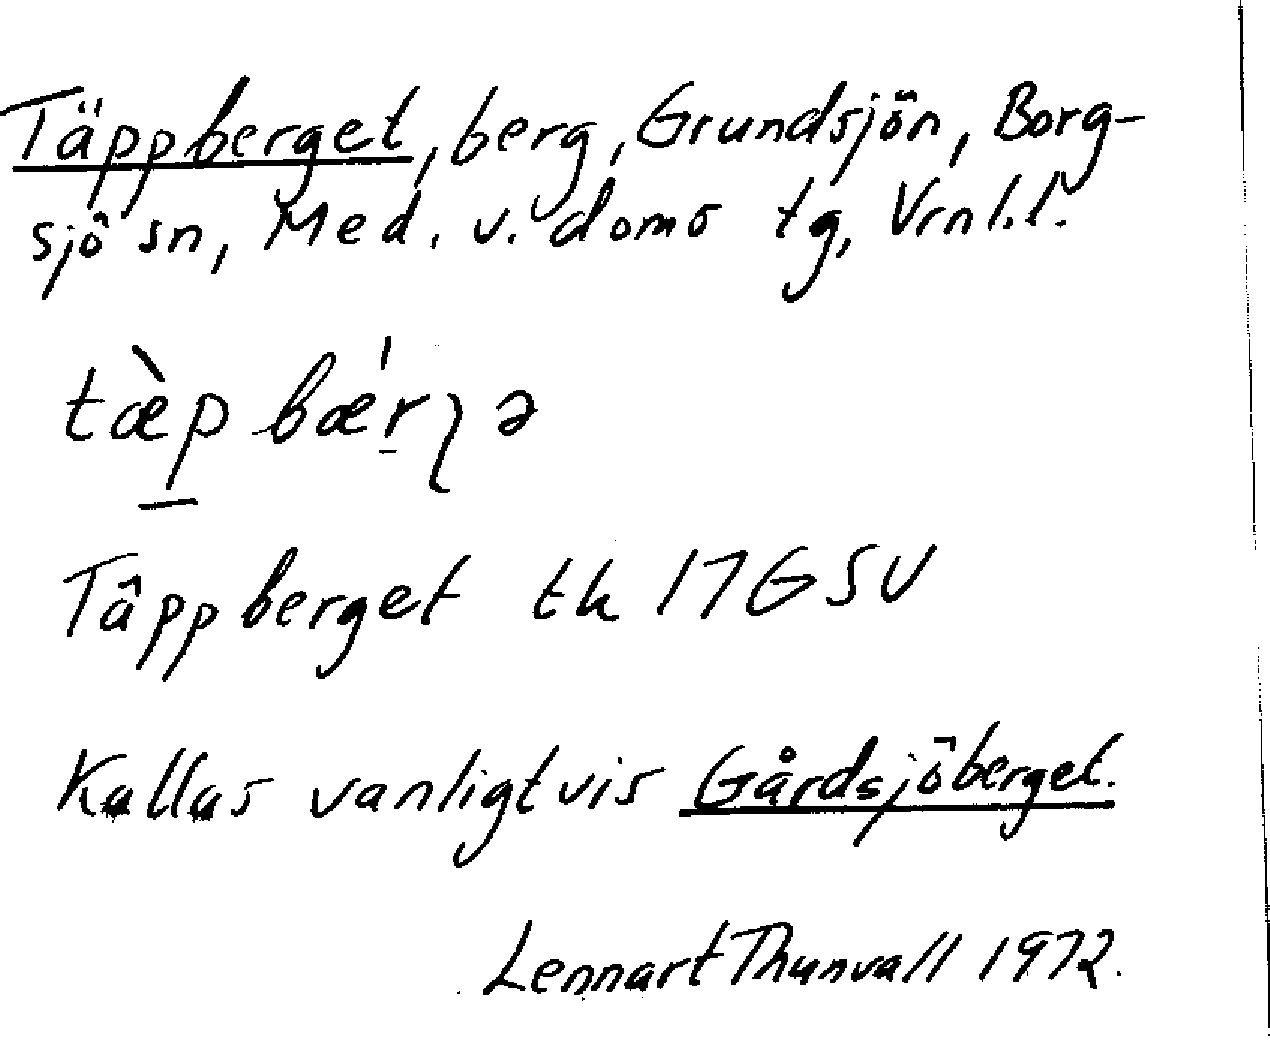 Täppberget, berg, Grundsjön, Borg-
sjö sn, Med. v. domo tg, Vrnl.l.
tæ̀p bǽrʒə
Täppberget tk 17GSV
Kallas vanligtvis Gårdsjöberget.
Lennart Thunvall 1972.